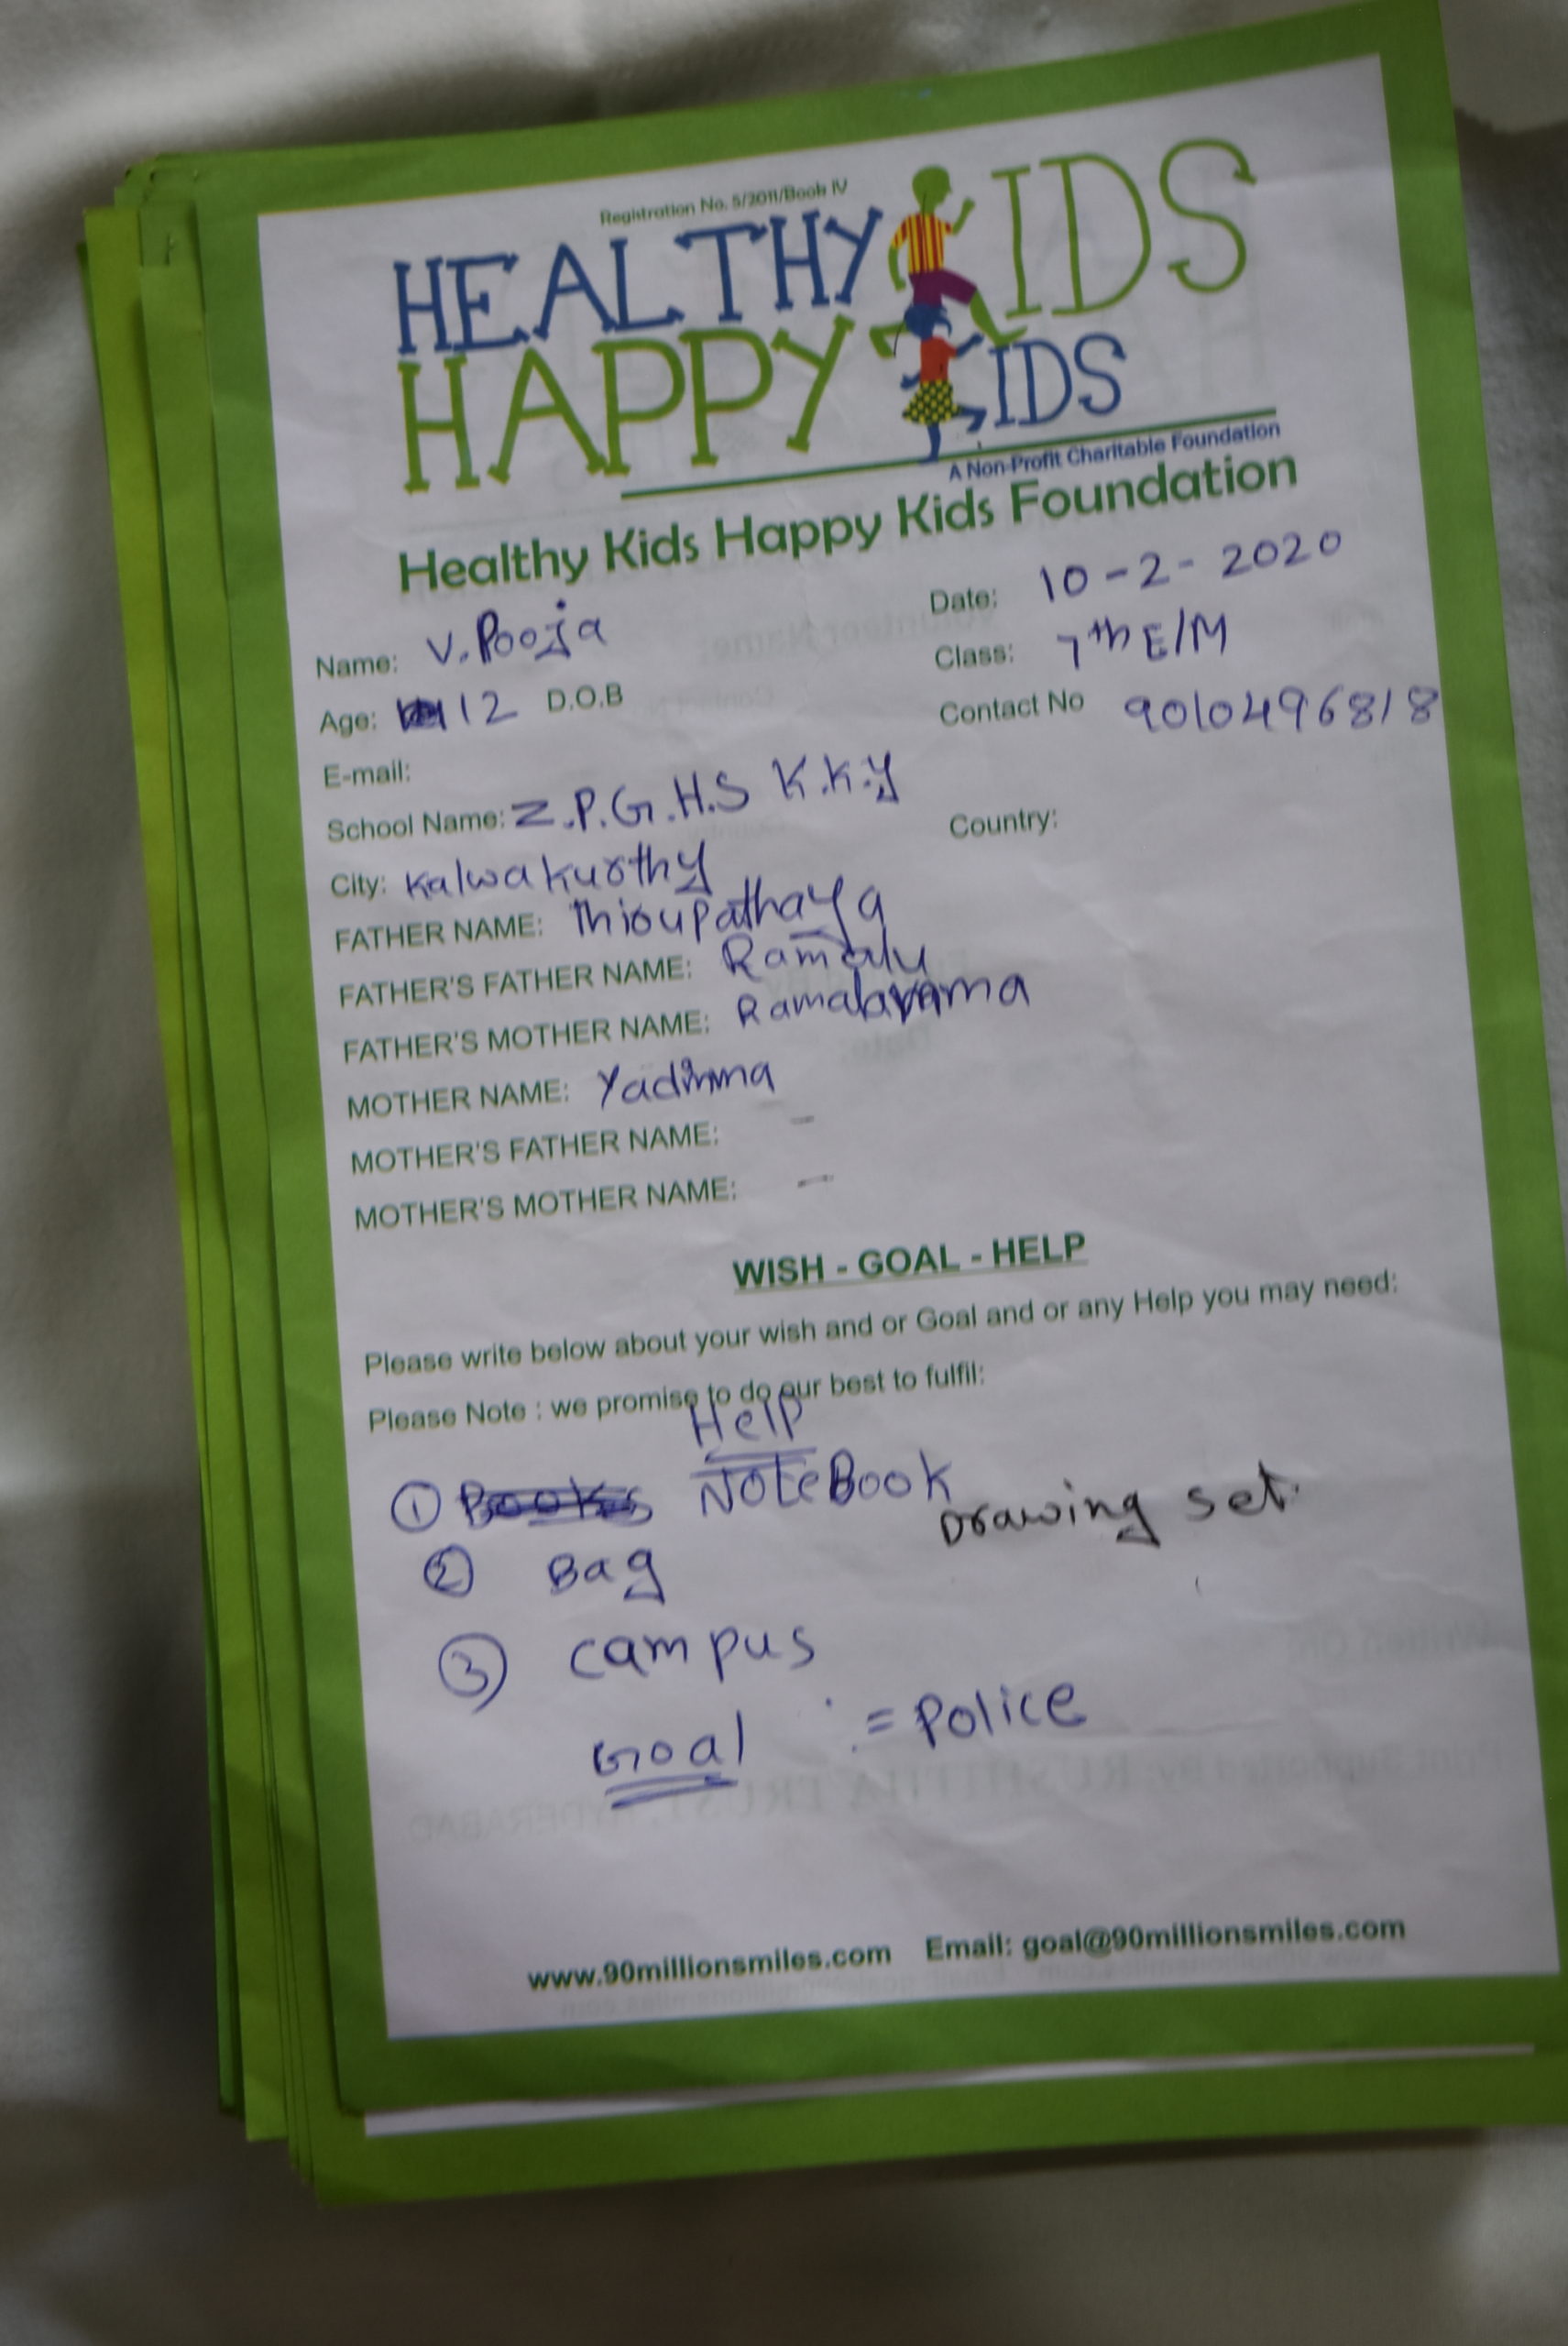 Registration No. 5/2011/Book IV
HEALTHY KIDS
HAPPY KIDS
A Non-Profit Charitable Foundation
Healthy Kids Happy Kids Foundation
Date: 10-2-2020
Name: V.Pooja
Class: 7th E/M
Age: 12 D.O.B
Contact No 9010496818
E-mail:
School Name: Z.P.G.H.S K.K.y
Country:
City: Kalwakurthy
FATHER NAME: Thirupathaya
FATHER'S FATHER NAME: Ramalu
FATHER'S MOTHER NAME:
MOTHER NAME: Yadimma
MOTHER'S FATHER NAME: -
MOTHER'S MOTHER NAME: -
WISH - GOAL - HELP
Please write below about your wish and or Goal and or any Help you may need:
Please Note : we promise to do our best to fulfil:
Help
① Books NoteBook
Drawing set.
② Bag
③ campus
Goal := Police
www.90millionsmiles.com Email: goal@90millionsmiles.com